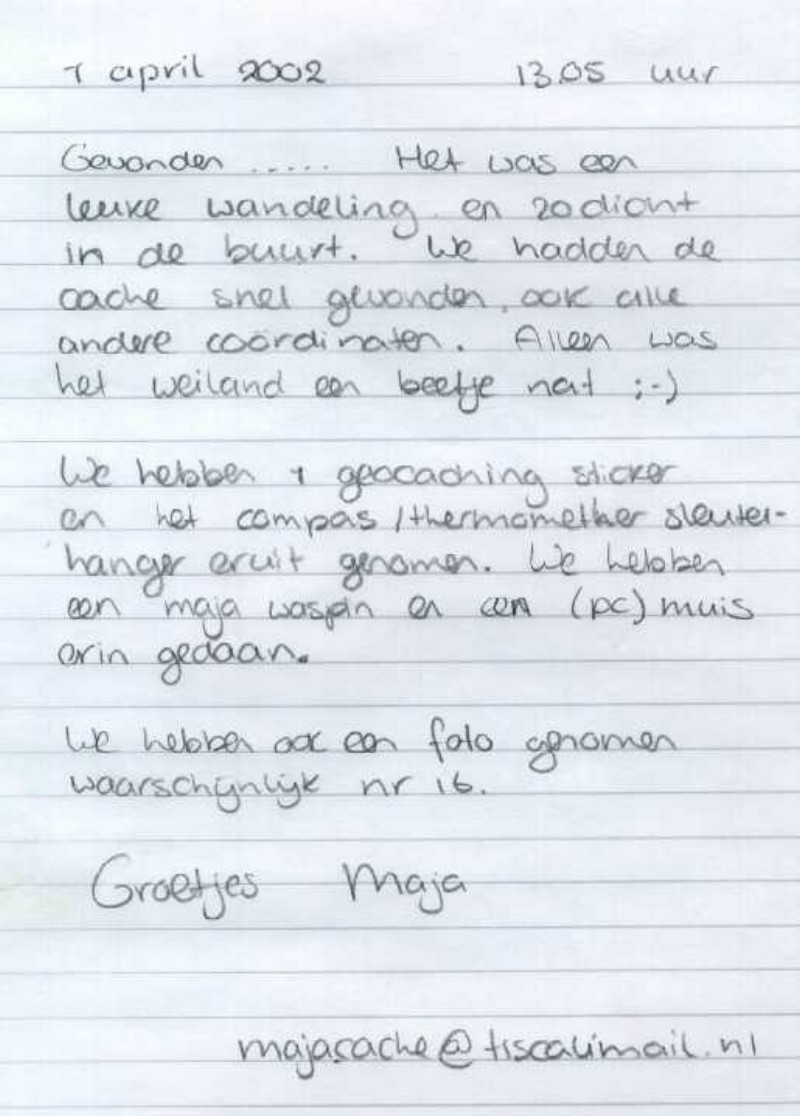 1 april 2002 13.05 uur
Gevonden ..... Het was een
leuke wandeling en zo dicht
in de buurt. We hadden de
cache snel gevonden, ook alle
andere coördinaten. Alleen was
het weiland een beetje nat ;-)
We hebben 1 geocaching sticker
en het compas/thermomether sleutel-
hanger eruit genomen. We hebben
een maja waspin en een (pc) muis
erin gedaan.
We hebben ook een foto genomen
waarschijnlijk nr 16.
Groetjes Maja
majascache@tiscalimail.nl